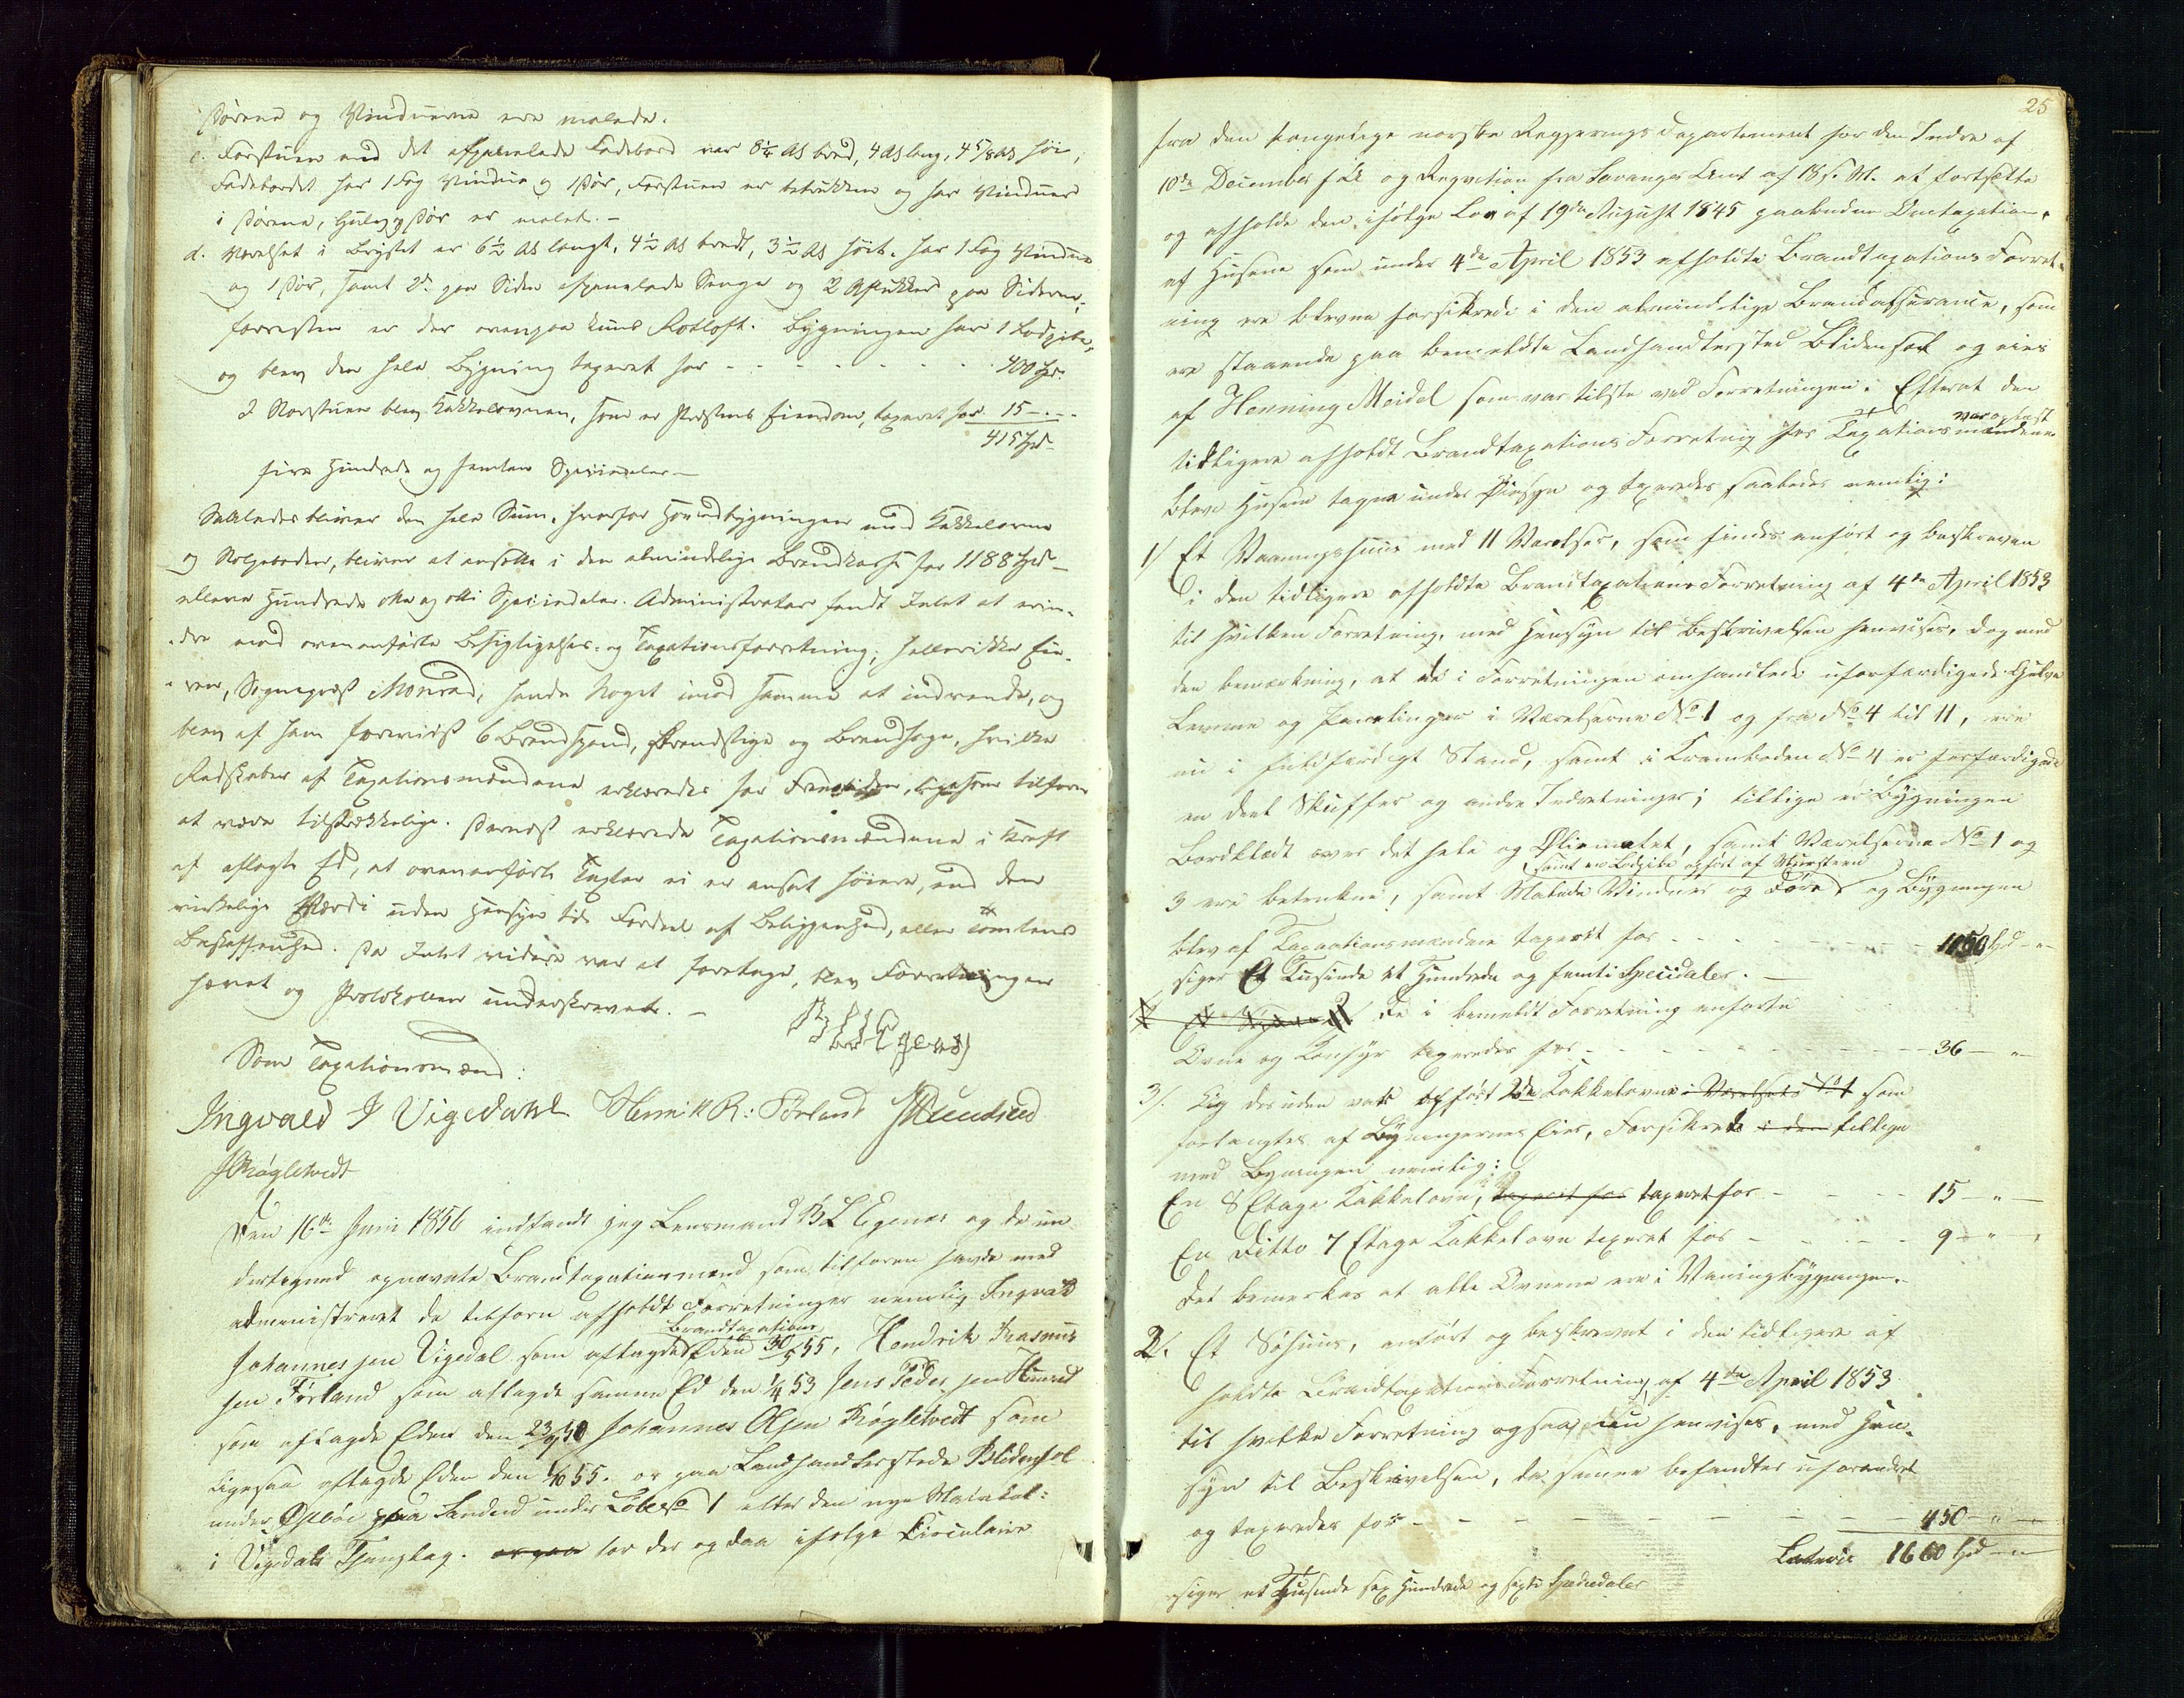 Dørene og Vinduerne ere malede.
c. Forstuen med det afpanelede Fadebord var 8¼ Al bred, 4 Al lang, 4 5/8 Al høi,
Fadebordet har 1 Fag Vindue og 1 Dør, Forstuen er betrukken og har Vinduer
i Dørene, Gulv og Dør er malet. –
d. Værelset i Brystet er 6½ Al langt, 4½ Al bredt, 3½ Al høit. har 1 Fag Vindue
og 1 Dør, samt 2de paa Siden afpanelede Senge og 2 Aflukker paa Siderne,
forresten er der ovenpaa kuns Rotloft. Bygningen har 1 Jodpibe,
og blev den hele Bygning taxeret for - - - - - - - 400 Spd.
I Norstuen blev Kakkelovnen, som er Præstens Eiendom, taxeret for 15 – - -
415 Spd
fire Hundrede og femten Speciedaler –
Saaledes bliver den hele Sum, hvorfor Hovedbygningen med Kakkelovne
og Norgeboden, bliver at ansætte i den almindelige Brandkasse for 1188 Spd –
elleve Hundrede otte og otti Speciedaler. Administrator fandt Intet at erin-
dre mod ovenanførte Besigtigelses- og Taxationsforretning; hellerikke Eie-
ren, Sogneprest Monrad, havde Noget imod samme at indvende, og
blev af ham foreviist 6 Brandspand, Brandstige og Brandhage, hvilke
Redskaber af Taxationsmændene erklæredes for Fremtiden, ligesom tilforn
at være tilstrækkelige. Dernæst erklærede Taxationsmændene i Kraft
af aflagte Ed, at ovenanførte Taxter ei er ansat høiere, end den
virkelige Værdi uden Hensyn til Fordeel af Beliggenhed, eller Tomtens
Beskaffenhed. Da Intet videre var at foretage, blev Forretningen
hævet og Protokollen underskrevet. –
B L Egenæs
Som Taxationsmænd:
Ingvald J Vigedahl Henrik R: Førland J P Hundseid
J Røgletvedt
Den 16de Juni 1856 indfandt jeg Lensmand B L Egenæs og de un
dertegned opnævnte Brandtaxationsmænd som tilforen havde med
administreret de tilforn afholdt Forretninger nemlig Ingvald
Johannesen Vigedal som aflagde Brandtaxations Eden 30/5 55, Hendrik Rasmus
sen Førland som aflagde samme Ed den 1/4 53 Jens Peder sen Hunseid
som aflagde Eden den 23/9 50 Johannes Olsen Røgletvedt som
ligesaa aflagde Eden den 1/10 55. og paa Landhandlerstedet Blidensol
under Østbøe paa Sandeid under Løbe No 1 efter den nye Matrikul:
i Vigedals Tjanglag. or paa for der og daa ifølge Circulaire
25
fra den kongelige norske Regjerings Departement for den Indre af
10de December f. A. og Reqvition fra Stavanger Amt af 18 s. M. at fortsætte
og afholde den, ifølge Lov af 19de August 1845 paabudne Omtaxation,
af Husene som under 4de April 1853 afholdte Brandtaxations Forret-
ning ere blevne forsikrede i den almindelige Brandassurance, som
ere staaende paa bemeldte Landhandlersted Blidensol og eies
af Henning Meidel som var tilste ved Forretningen. Efterat den
tidligere afholdt Brandtaxations Forretnig for Taxationsmændene var oplæst
bleve Husene tagne under Øiesyn og taxeredes saaledes nemlig:
1/ Et Vaaningshuus med 11 Værelser, som findes anført og beskreven
i den tidligere afholdte Brandtaxations Forretning af 4de April 1853
til hvilken Forretning, med Hensyn til Beskrivelsen henvises, dog med
den bemærkning, at de i Forretningen omhandlede uforfærdigede Gulve
Lemme og Panelinger i Værelserne No 1 og fra No 4 til 11, ere
nu i fuldfærdigt Stand, samt i Kramboden No 4 er forfærdigede
en deel Skuffer og andre Indretninger; tillige er Bygningen
Bordklædt over det hele og Oliemalet, samt Værelserne No 1 og
3 ere betrukne, samt Malede Vinduer og Døre samt en Jodpibe opført af Muursteen og Bygningen
blev af Taxationsmændene taxeret for - - - - - - 1150 Spd – "
siger Et Tusinde et Hundrede og femti Speciedaler. –
2/ De i bemeldt Forretning anførte
Ovne og Komfyr taxeredes for - - - - - - - - 36 – "
3/. Ligdesuden var opført 2de Kakkelovne i Værelset No 1 som
forlangtes af Bygningernes Eier, Forsikrede i den tillige
med Bygningen nemlig:
En 8 Etage Kakkelovn, taxeret for taxeret for - - - 15 – " –
En Ditto 7 Etage Kakkelovn taxeret for - - - - 9 – " –
Det bemærkes at alle Ovnene ere i Vaaningbygningen. –
2/. Et Søhuus, anført og beskrevet i den tidligere af
holdte Brandtaxations Forretning af 4de April 1853
til hvilke Forretning ogsaa nu henvises, med Hen-
syn til Beskrivelsen, da samme befandtes uforandret
og taxeredes for - - - - - - - - - 450 – " –
Lateris 1660 Spd – "
siger et Tusinde sex Hundrede og sexti Speciedaler